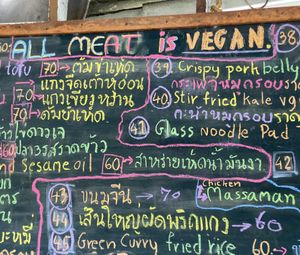 ALL MEAT is VEGAN. 38
70 → ต้มยำเห็ด 39 Crispy pork belly
แกงจืดเต้าหู้อ่อน กะเพราหมูกรอบราด
70 → แกงเขียวหวาน 40 Stir fried kale
70 → ต้มข่าเห็ด คะน้าหมูกรอบราด
41 Glass noodle Pad
nd Sesame oil 60 → สาหร่ายเห็ดน้ำมันงา 42
43 ขนมจีน → 70 Chicken Massaman
44 เส้นใหญ่ผัดพริกแกง → 60
45 Green Curry fried rice 60